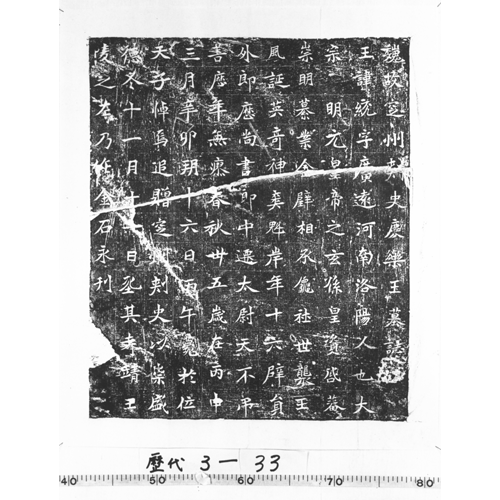 魏故定州刺史廣樂王墓誌
王諱統字廣遠河南洛陽人也太
宗明元皇帝之玄孫皇資啓蕃
崇明基業金辟相承龍社世襲王
風誕英奇神奕魁岸年十六辟員
外郎應尚書郎中遷太尉天不弔
善曆年無瘳春秋卅五歲在丙申
三月辛卯朔十六日丙午薨於位
天子悼焉追贈定州刺史以柴盛
德冬十一月十日坒其考靖王
陵之塋乃作金石永刊
歷代 3-33
40 50 60 70 80